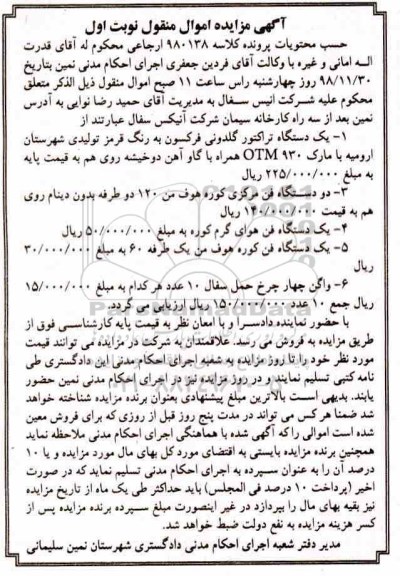 آگهی مزایده اموال منقول نوبت اول
حسب محتویات پرونده کلاسه ۹۸۰۱۳۸ ارجاعی محکوم له آقای قدرت
الـه امانی و غیره با وکالت آقای فردین جعفری اجرای احکام مدنی نمین بتاریخ
۹۸/۱۱/۳۰ روز چهارشنبه راس ساعت ۱۱ صبح اموال منقول ذیل الذکر متعلق
محکوم علیه شـرکت انیس سـفال به مدیریت آقای حمید رضا نوایی به آدرس
نمین بعد از سه راه کارخانه سیمان شرکت آنیکس سفال عبارتند از
۱- یک دستگاه تراکتور گلدونی فرکسون به رنگ قرمز تولیدی شهرستان
ارومیه با مارک OTM ۹۳۰ همراه با گاو آهن دوخیشه روی هم به قیمت پایه
به مبلغ ۲۲۵/۰۰۰/۰۰۰ ریال
۳- دو دستگاه فن مرکزی کوره هوف من ۱۲۰ دو طرفه بدون دینام روی
هم به قیمت ۱۴۰/۰۰۰/۰۰۰ ریال
۴- یک دستگاه فن هوای گرم کوره به مبلغ ۵۰/۰۰۰/۰۰۰ ریال
۵- یک دستگاه فن کوره هوف من یک طرفه ۶۰ به مبلغ ۳۰/۰۰۰/۰۰۰
ریال
۶- واگن چهار چرخ حمل سفال ۱۰ عدد هر کدام به مبلغ ۱۵/۰۰۰/۰۰۰
ریال جمع ۱۰ عدد ۱۵۰/۰۰۰/۰۰۰ ریال ارزیابی می گردد.
با حضور نماینده دادسـرا و با امعان نظر به قیمت پایه کارشناسـی فوق از
طریق مزایده به فروش می رسد. علاقمندان به شرکت در مزایده می توانند قیمت
مورد نظر خود را تا روز مزایده به شعبه اجرای احکام مدنی این دادگستری طی
نامه کتبی تسلیم نمایند و در روز مزایده نیز در اجرای احکام مدنی نمین حضور
یابند. بدیهی اسـت بالاترین مبلغ پیشنهادی بعنوان برنده مزایده شناخته خواهد
شد ضمنا هر کس می تواند در مدت پنج روز قبل از روزی که برای فروش معین
شده است اموالی را که آگهی شده با هماهنگی اجرای احکام مدنی ملاحظه نماید
همچنین برنده مزایده بایستی به اقتضای مورد کل بهای مال مورد مزایده و یا ۱۰
درصد آن را به عنوان سـپرده به اجرای احکام مدنی تسلیم نماید که در صورت
اخیر (پرداخت ۱۰ درصد فی المجلس) باید حداکثر طی یک ماه از تاریخ مزایده
نیز بقیه بهای مال را بپردازد در غیر اینصورت مبلغ سـپرده برنده مزایده پس از
کسر هزینه مزایده به نفع دولت ضبط خواهد شد.
مدیر دفتر شعبه اجرای احکام مدنی دادگستری شهرستان نمین سلیمانی